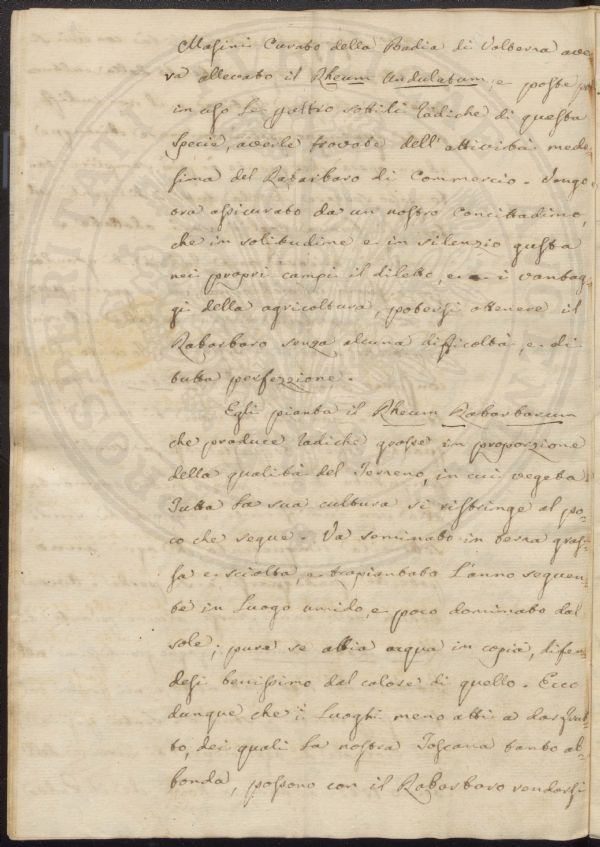 Masini Curato della Badia di Valberna ave-
va allevato il Rheum Undulatum, e poste
in uso le quattro sottili radiche di questa
specie, averle trovate dell' attività mede-
sima del Rabarbaro di Commercio. Vengo
ora assicurato da un nostro Concittadino,
che in solitudine e in silenzio gusta
nei propri campi il diletto, e i vantag-
gi della agricoltura, potersi ottenere il
Rabarbaro senza alcuna difficoltà, e di
tutta perfezzione.
Egli pianta il Rheum Rabarbarum
che produce radiche grosse in proporzione
della qualità del Terreno, in cui vegeta
Tutta la sua cultura si ristringe al po-
co che segue. Va seminato in terra gras-
sa e sciolta, e trapiantato l'anno seguen-
te in luogo umido, e poco dominato dal
sole; pure se abbia acqua in copia, difen-
desi benissimo dal calore di quello. Ecco
dunque che i luoghi meno atti a dar frut-
to, dei quali la nostra Toscana tanto ab-
bonda, possono con il Rabarbaro rendersi
PROSPERITÀ